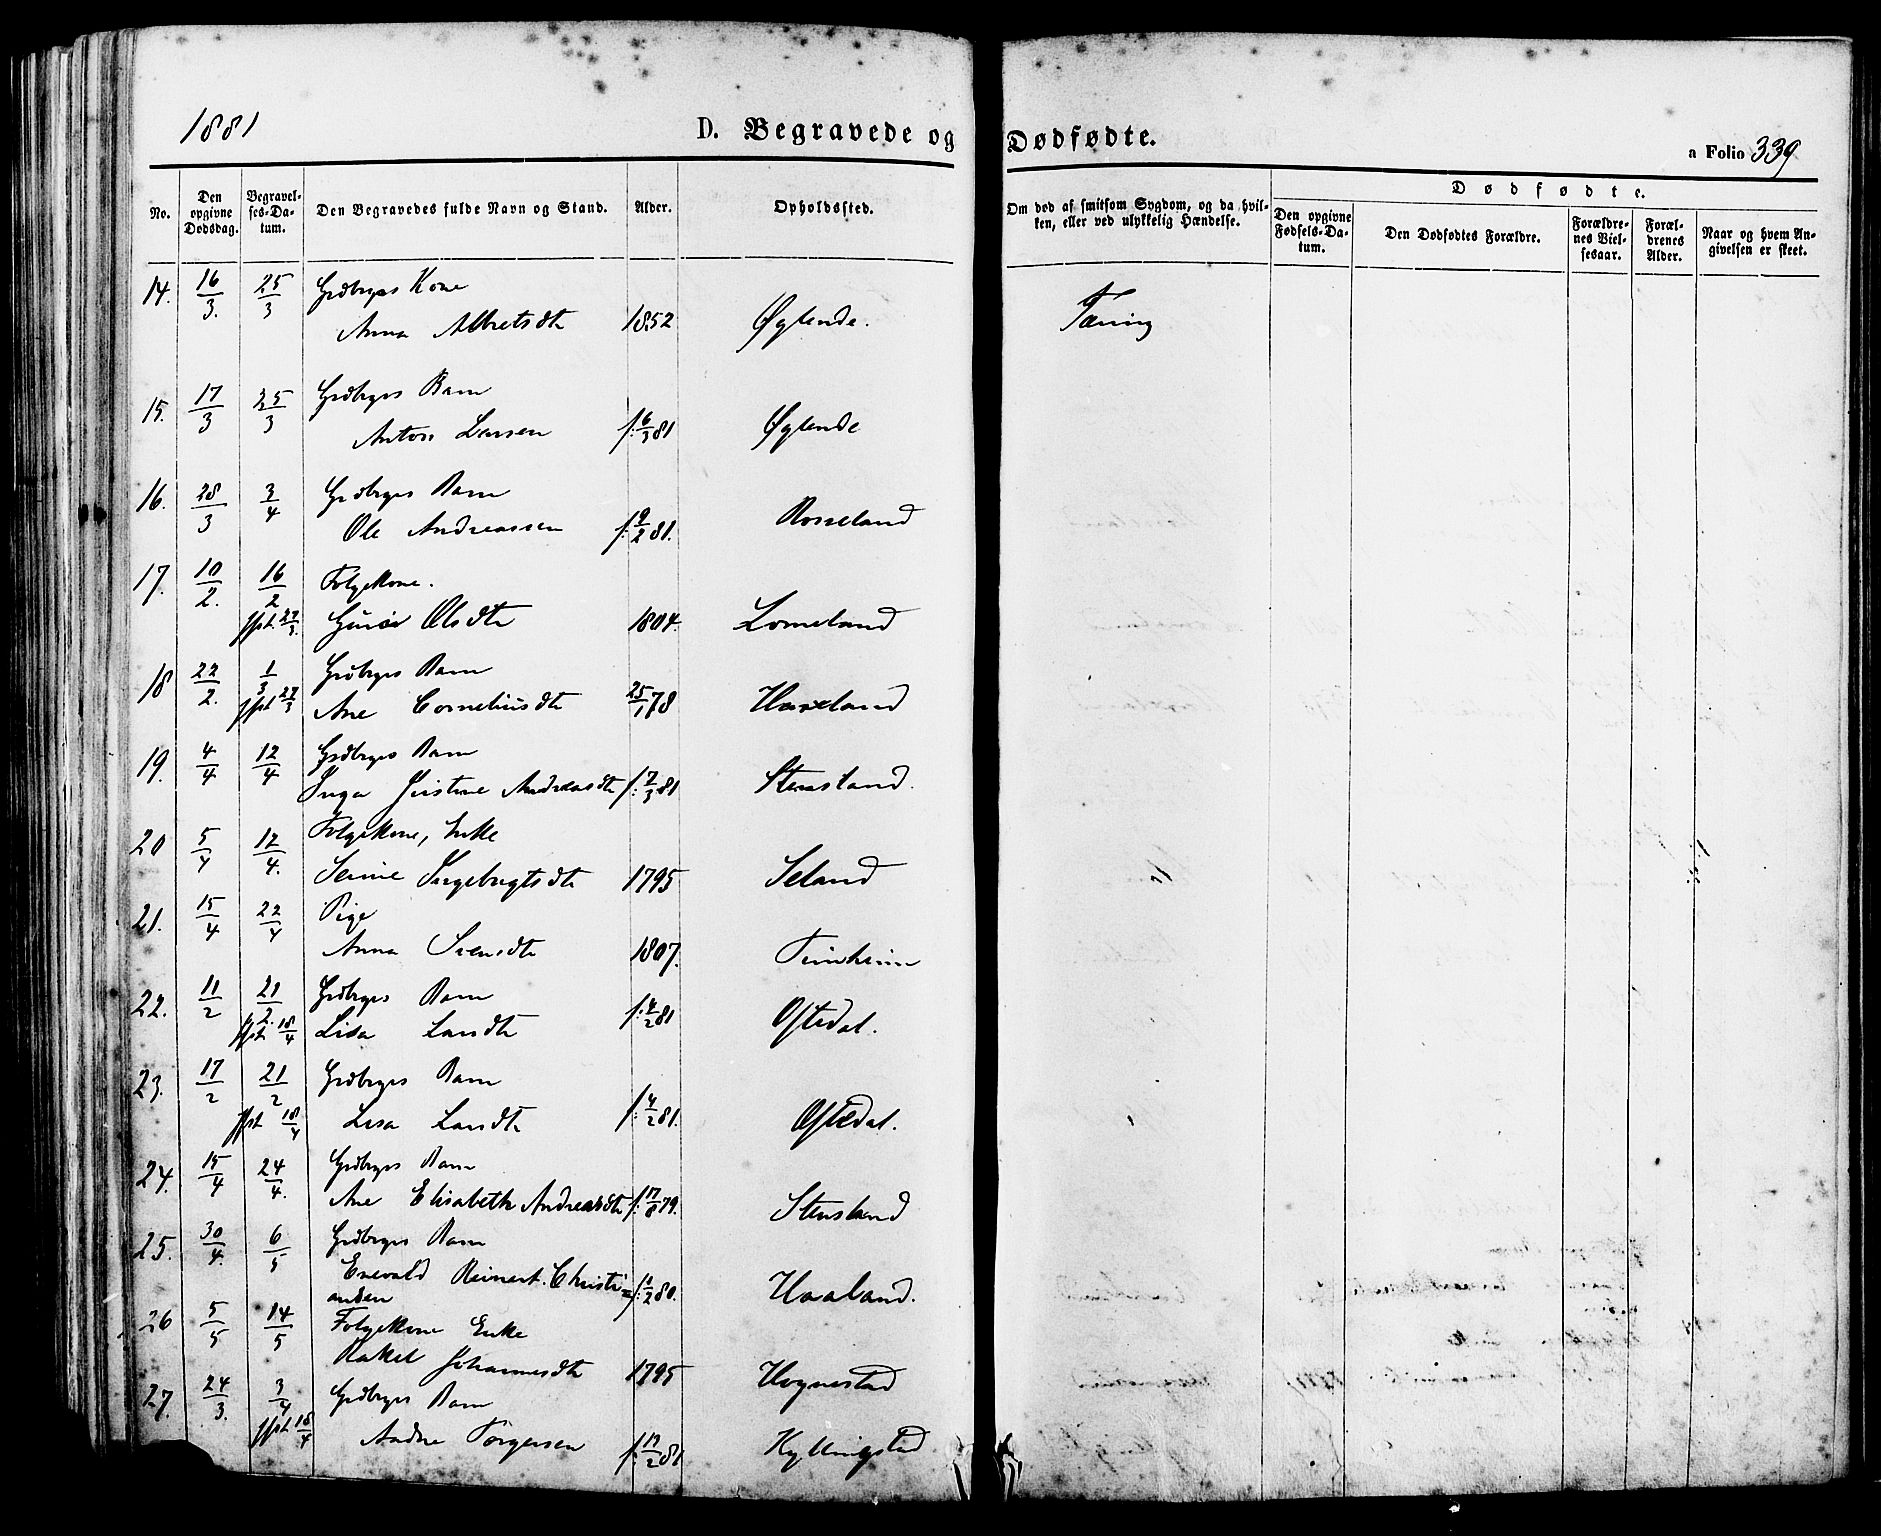 1881
D. Begravede og Dødfødte.
a Folio 339
No.
Den opgivne Dødsdag.
Begravelses-Datum.
Den Begravedes fulde Navn og Stand.
Alder.
Opholdssted.
Om død af smitsom Sygdom, og da hvilken, eller ved ulykkelig Hændelse.
Dødfødte.
Den opgivne Fødsels-Datum.
Den Dødfødtes Forældre.
Forældrenes Vielsesaar.
Forældrenes Alder.
Naar og hvem Angivelsen er skeet.
14. 16/3. 25/3 Grdbrgers Kone
Anna Albretsdtr 1852 Øglende. Tæring
15. 17/3 25/3 Grdbrgers Barn
Anton Larsen f: 6/3 81 Øglende
16. 28/3 3/4 Grdbrgers Barn
Ole Andreassen f: 9/2 81. Rosseland
17. 10/2. 16/2 Folgekone.
jfpt. 27/3. Guroe Olsdtr 1804. Lomeland
18 22/2. 1/3 Grdbrgers Barn
jfpt 27/3 Ane Corneliusdtr 25/1 78 Haveland
19. 4/4 12/4 Grdbrgers Barn
Inga Justine Andreasdtr f: 7/3 81 Stensland.
20 5/4 12/4. Folgekone, Enke
Serine Ingebrigtsdtr 1795 Seland
21. 15/4 22/4 Pige
Anna Svensdtr 1807. Tunheim
22. 11/2 21/2. Grdbrgers Barn
jfpt. 18/4 Lisa Larsdtr f: 4/2 81 Oftedal.
23. 17/2 21/2 Grdbrgers Barn
jfpt 18/4 Lisa Larsdtr f: 4/2 81. Oftedal.
24. 15/4 24/4. Grdbrgers Barn
Ane Elisabeth Andreasdtr f: 17/8 79. Stensland
25. 30/4. 6/5 Grdbrgers Barn
Enevald Reinert Christi= f: 1/2 80. Haaland.
ansen
26 5/5 14/5 Folgekone Enke
Rakel Johannesdtr 1795 Hognestad
27. 24/3. 3/4 Grdbrgers Barn
jfpt 18/4 Andre Torgersen f: 17/2 81 Kyllingstad